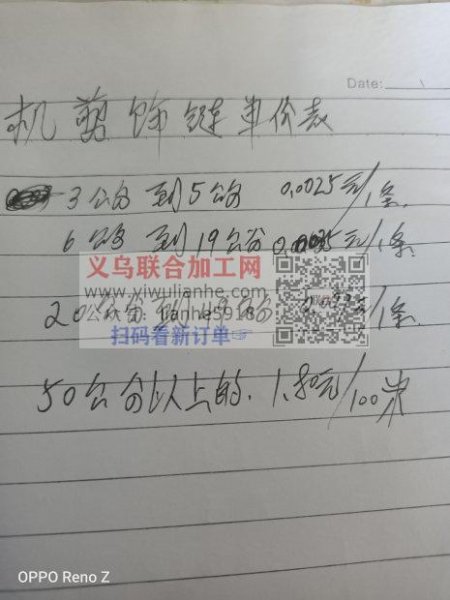 Date:
机剪饰链单价表
3公分到5公分 0.0025元/1条.
6公分到19公分 0.0035元/1条
义乌联合加工网
www.yiwulianhe.com
20公分到 /1条.
公众号: lianhe5918
扫码看新订单
50公分以上的. 1.80元/100米
OPPO Reno Z